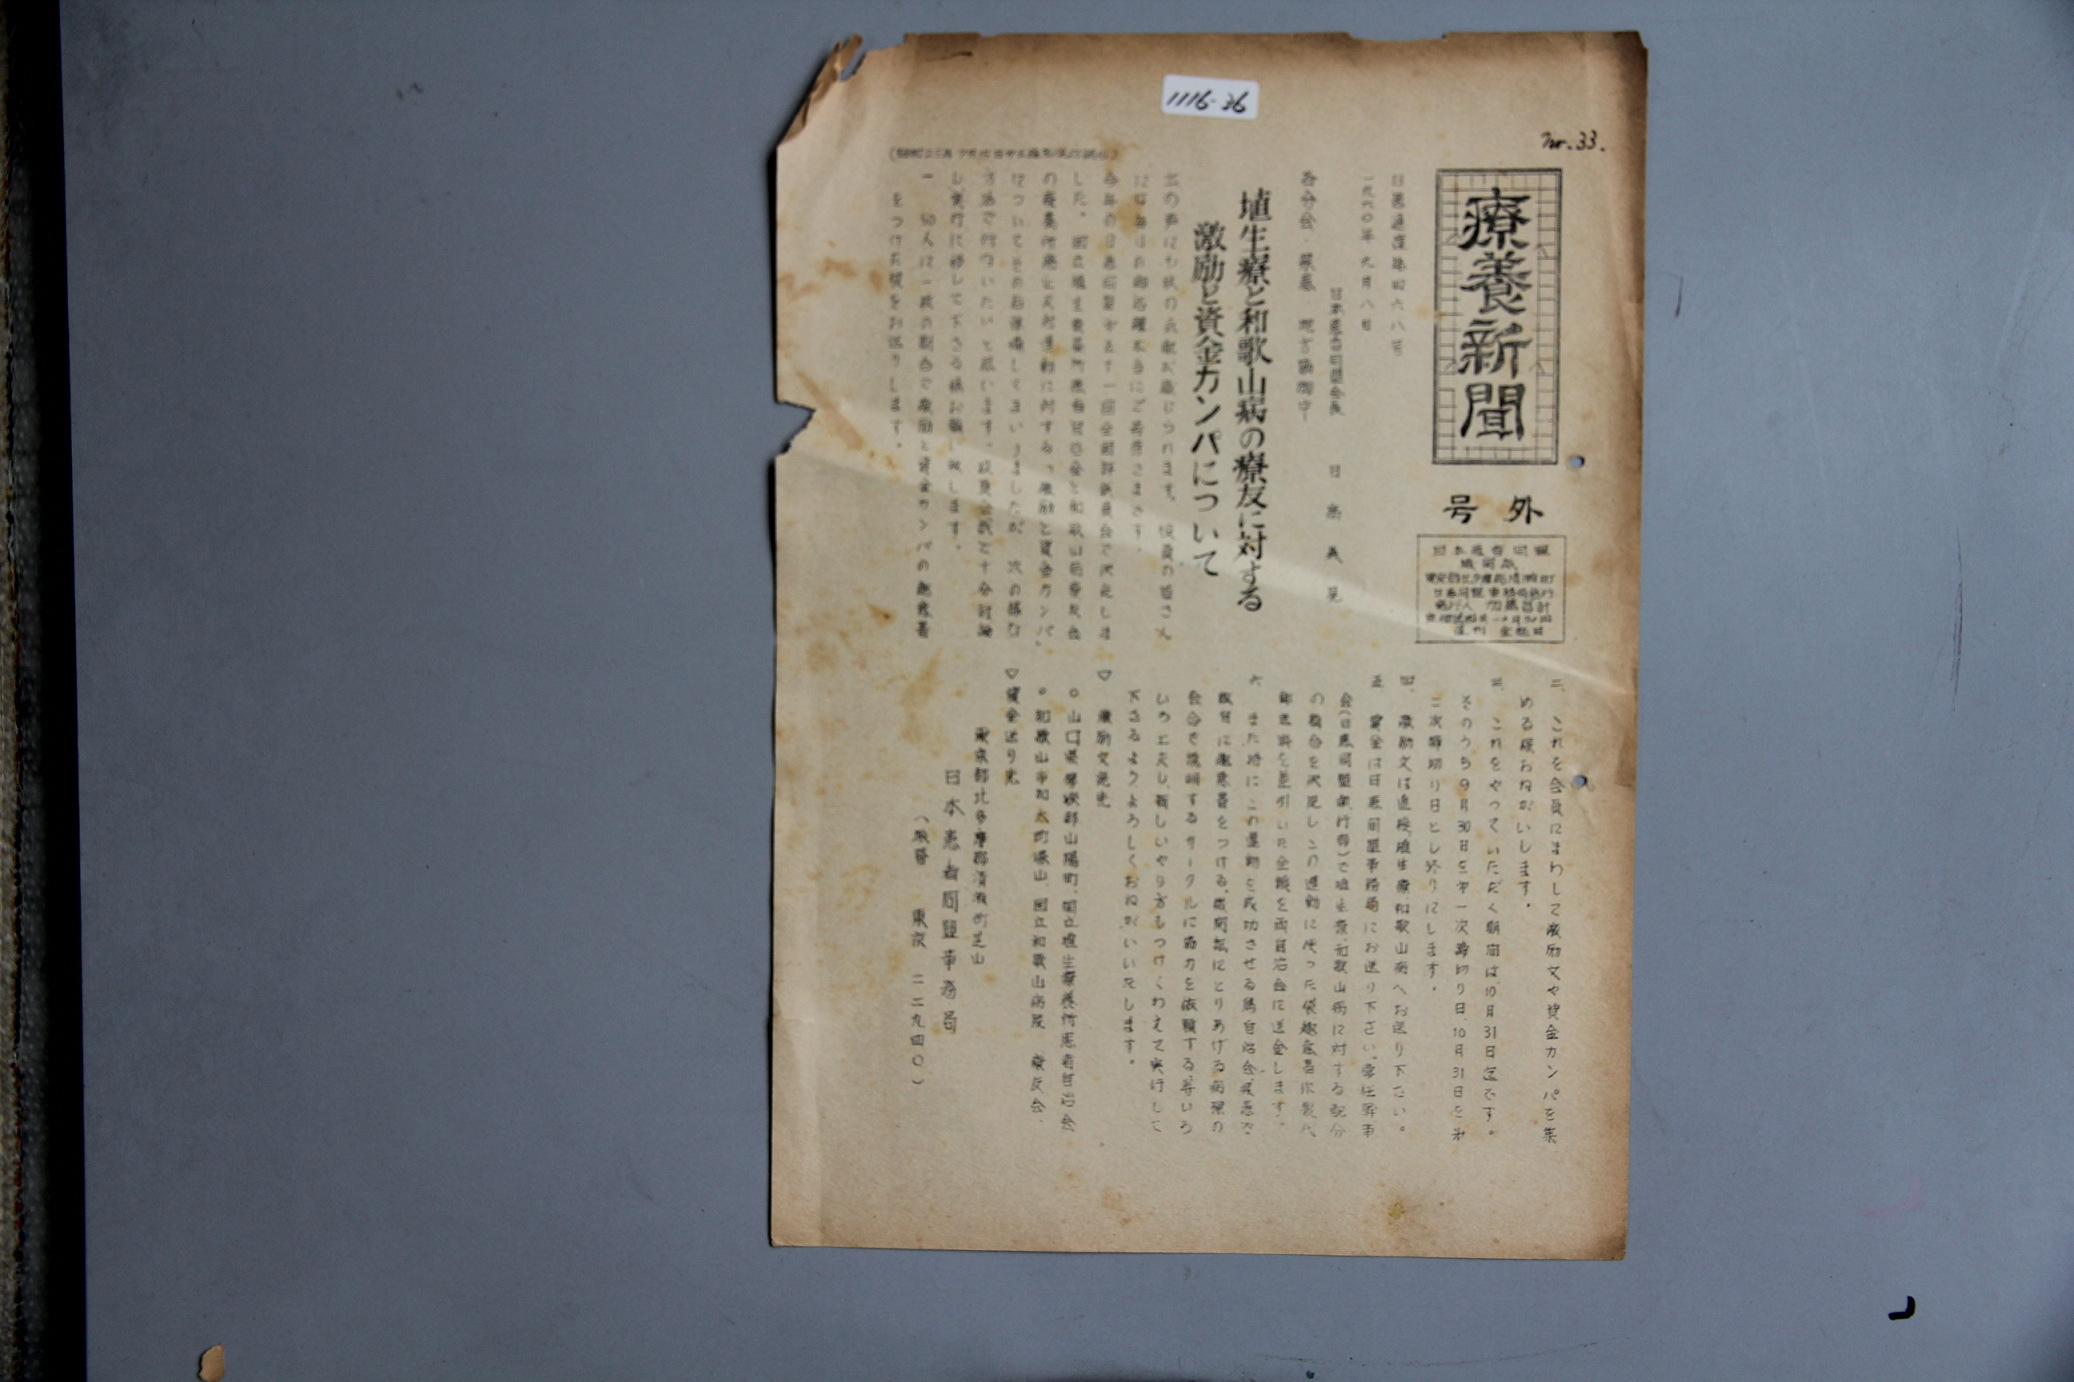 1116-36
no.33.
療養新聞
号外
日本患者同盟
機関紙
日患同盟事務局発行
週刊 金曜日
日患通達第四六八号
一九六〇年九月八日
日本患者同盟会長 日高義晃
各分会・県患 地方協御中
埴生療と和歌山病の療友に対する
激励と資金カンパについて
した。国立埴生療養所患者自治会と和歌山病療友会
の療養所廃止反対運動に対する「激励と資金カンパ」
についてその準備してまいりましたが 次の様な
方法で行いたいと思います。役員会議で十分討論
し実行に移して下さる様お願い致します。
一 50人に一枚の割合で激励と資金カンパの趣意書
をつけた袋をお送りします。
二、これを会員にまわして激励文や資金カンパを集
める様おねがいします。
三、これをやっていただく期間は10月31日迄です。
そのうち9月30日を第一次締切り日、10月31日を第
二次締切り日とし終りにします。
四、激励文は直接埴生療、和歌山病へお送り下さい。
五、資金は日患同盟事務局にお送り下さい。常任幹事
会(日患同盟執行部)で埴生療、和歌山病に対する配分
の割合を決定しこの運動に使った袋趣意書作製代
郵送料を差引いた金額を両自治会に送金します。
六、また特にこの運動を成功させる為自治会、県患で
独自に趣意書をつける、機関紙にとりあげる、病棟の
会合で説明する、サークルに協力を依頼する、等いろ
いろ工夫し、新しいやり方もつけくわえて実行して
下さるようよろしくおねがいいたします。
▽ 激励文宛先
○ 山口県厚狭郡山陽町、国立埴生療養所患者自治会
○ 和歌山市和太町塚山、国立和歌山病院 療友会、
▽ 資金送り先
東京都北多摩郡清瀬町芝山
日本患者同盟事務局
(振替 東京 二二九四〇)